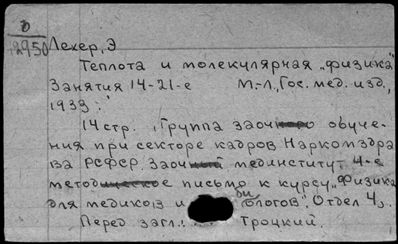 δ
12950
Лехер, Э
Теплота и молекулярная „физика"
Занятия 14-21-е М.-Л., Гос. мед. изд.,
1933.
14 стр. (Группа заочного обуче-
ния при секторе кадров Наркомздра-
ва РСФСР. Заочный мединститут 4-е
методическое письмо к курсу „Физика
для медиков и биологов". Отдел 4).
Перед загл.: Троцкий.